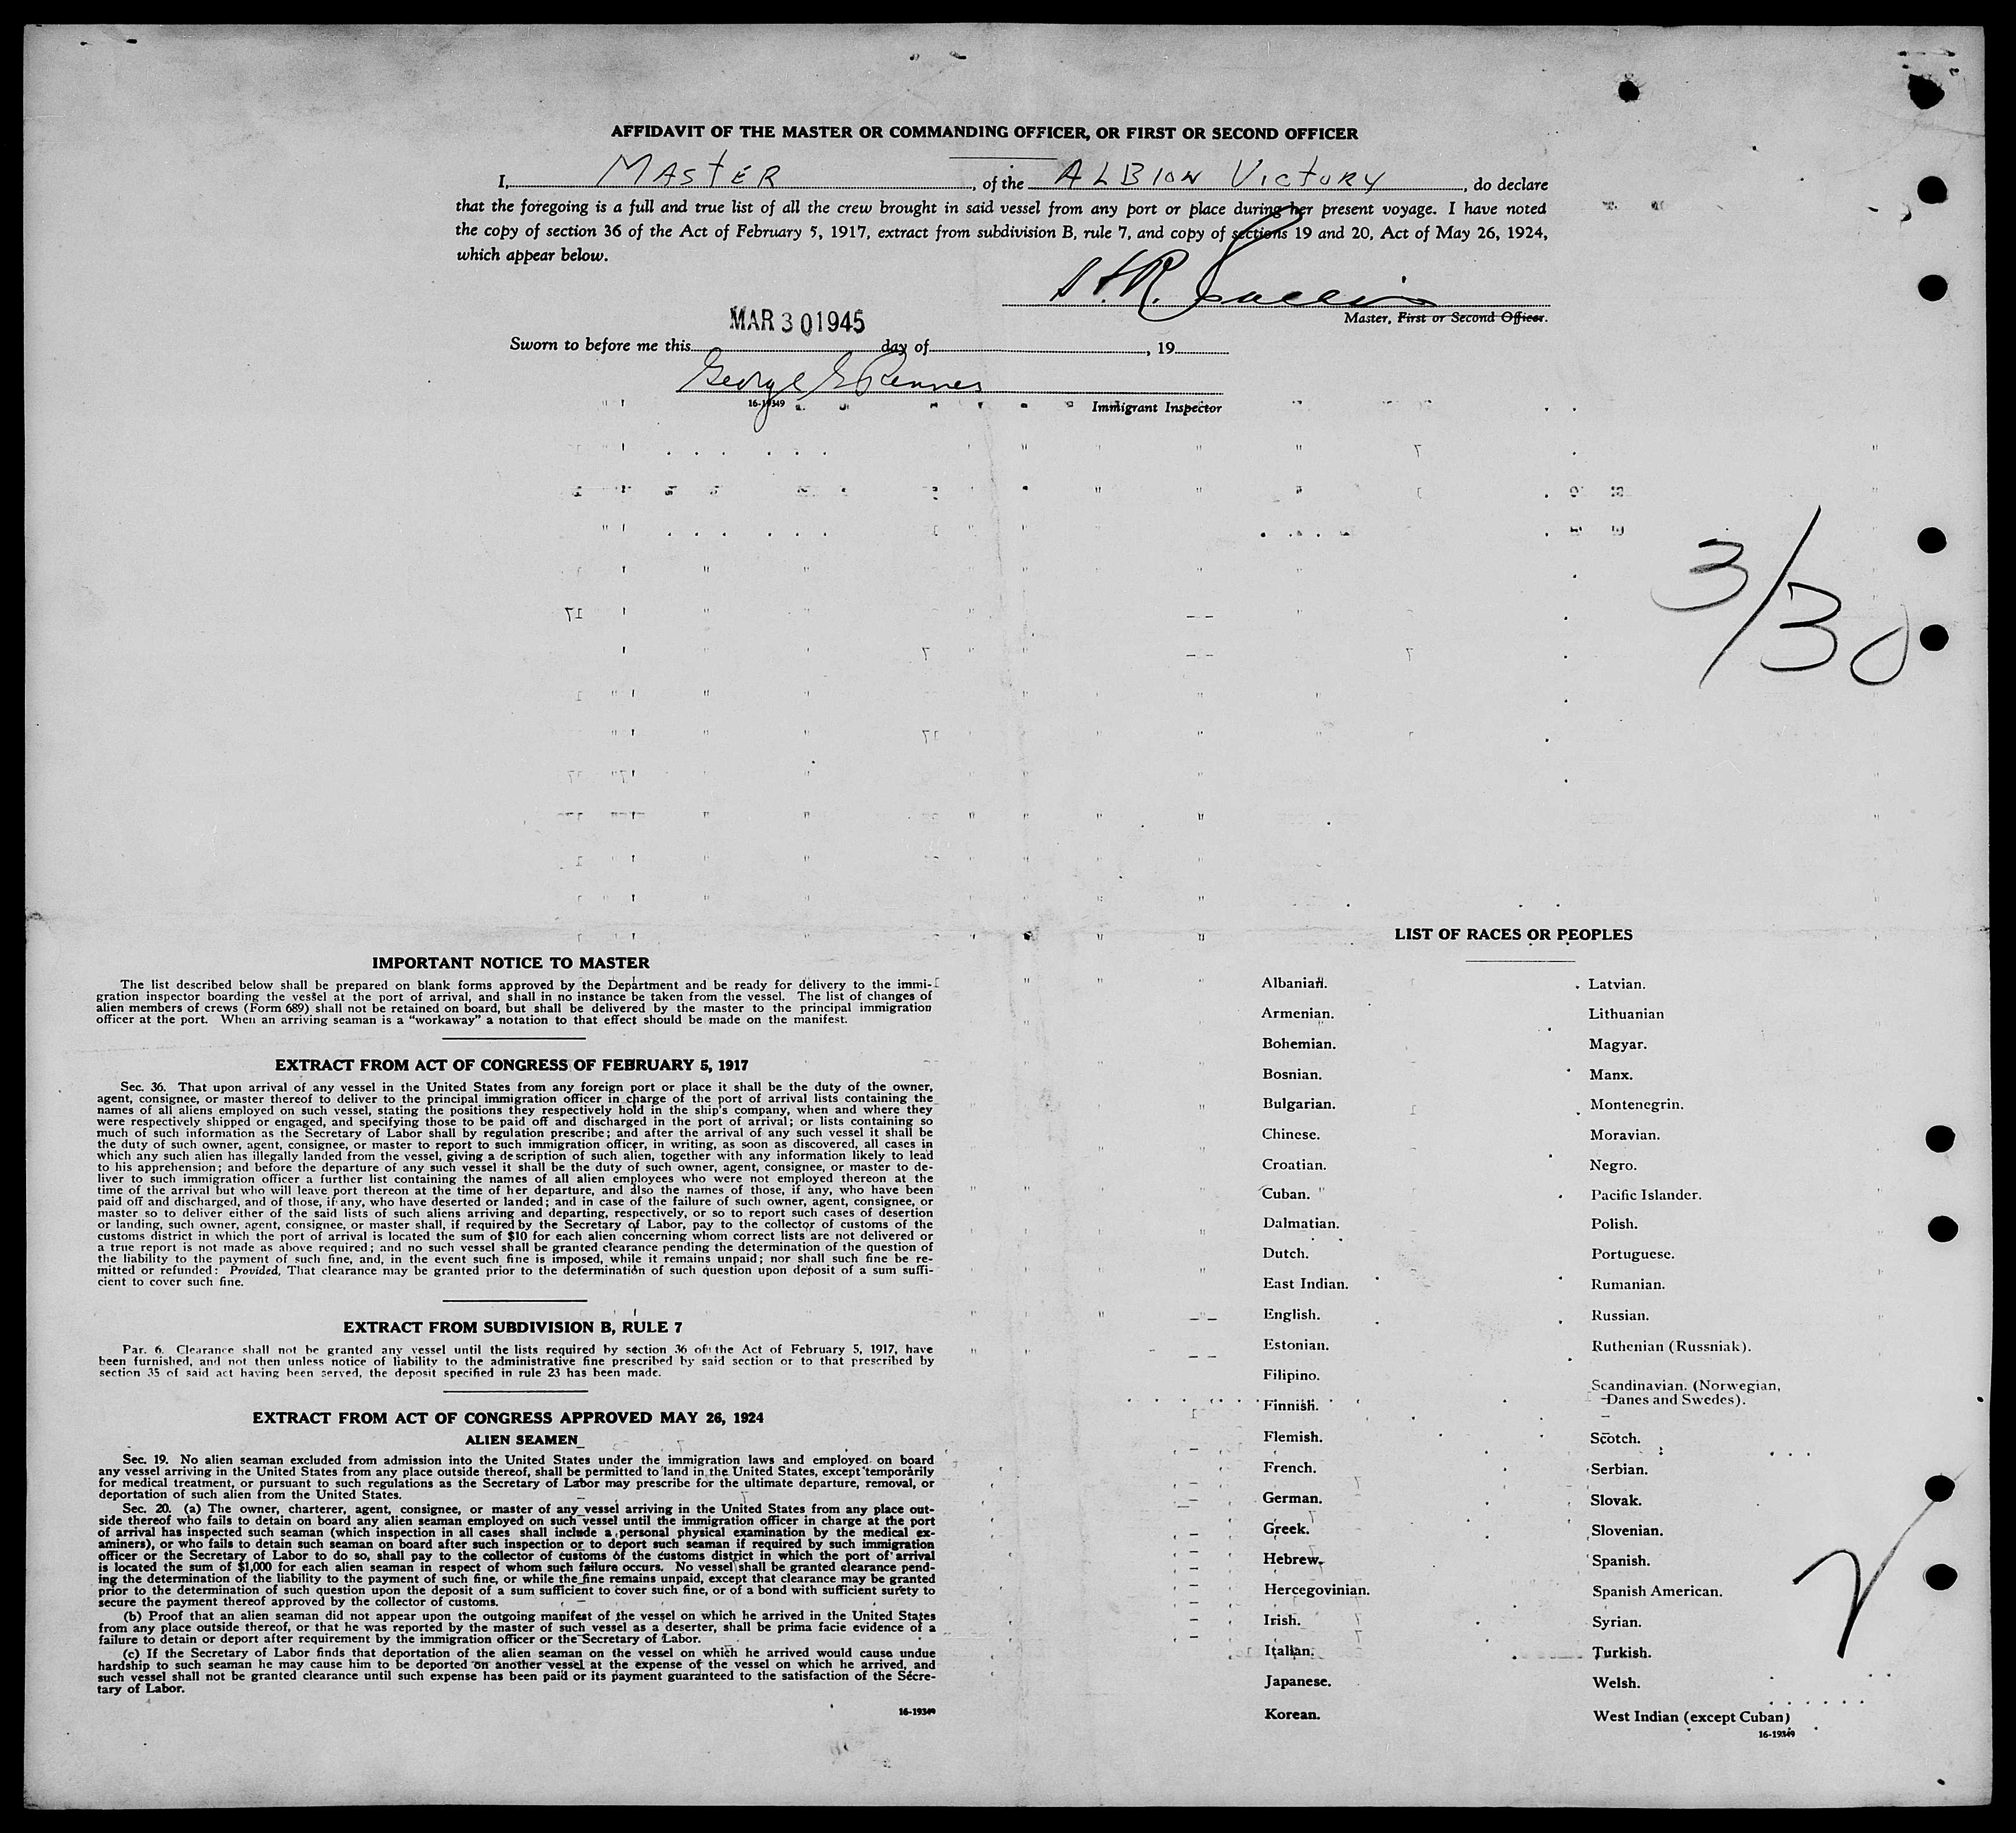 AFFIDAVIT OF THE MASTER OR COMMANDING OFFICER, OR FIRST OR SECOND OFFICER
I, MASTER, of the ALBION VICTORY, do declare
that the foregoing is a full and true list of all the crew brought in said vessel from any port or place during her present voyage. I have noted
the copy of section 36 of the Act of February 5, 1917, extract from subdivision B, rule 7, and copy of sections 19 and 20, Act of May 26, 1924,
which appear below.
Master, First or Second Officer.
MAR 30 1945
Sworn to before me this day of , 19
George
16-19349
Immigrant Inspector
3/30
IMPORTANT NOTICE TO MASTER
The list described below shall be prepared on blank forms approved by the Department and be ready for delivery to the immi-
gration inspector boarding the vessel at the port of arrival, and shall in no instance be taken from the vessel. The list of changes of
alien members of crews (Form 689) shall not be retained on board, but shall be delivered by the master to the principal immigration
officer at the port. When an arriving seaman is a "workaway" a notation to that effect should be made on the manifest.
EXTRACT FROM ACT OF CONGRESS OF FEBRUARY 5, 1917
Sec. 36. That upon arrival of any vessel in the United States from any foreign port or place it shall be the duty of the owner,
agent, consignee, or master thereof to deliver to the principal immigration officer in charge of the port of arrival lists containing the
names of all aliens employed on such vessel, stating the positions they respectively hold in the ship's company, when and where they
were respectively shipped or engaged, and specifying those to be paid off and discharged in the port of arrival; or lists containing so
much of such information as the Secretary of Labor shall by regulation prescribe; and after the arrival of any such vessel it shall be
the duty of such owner, agent, consignee, or master to report to such immigration officer, in writing, as soon as discovered, all cases in
which any such alien has illegally landed from the vessel, giving a description of such alien, together with any information likely to lead
to his apprehension; and before the departure of any such vessel it shall be the duty of such owner, agent, consignee, or master to de-
liver to such immigration officer a further list containing the names of all alien employees who were not employed thereon at the
time of the arrival but who will leave port thereon at the time of her departure, and also the names of those, if any, who have been
paid off and discharged, and of those, if any, who have deserted or landed; and in case of the failure of such owner, agent, consignee, or
master so to deliver either of the said lists of such aliens arriving and departing, respectively, or so to report such cases of desertion
or landing, such owner, agent, consignee, or master shall, if required by the Secretary of Labor, pay to the collector of customs of the
customs district in which the port of arrival is located the sum of $10 for each alien concerning whom correct lists are not delivered or
a true report is not made as above required; and no such vessel shall be granted clearance pending the determination of the question of
the liability to the payment of such fine, and, in the event such fine is imposed, while it remains unpaid; nor shall such fine be re-
mitted or refunded: Provided, That clearance may be granted prior to the determination of such question upon deposit of a sum suffi-
cient to cover such fine.
EXTRACT FROM SUBDIVISION B, RULE 7
Par. 6. Clearance shall not be granted any vessel until the lists required by section 36 of the Act of February 5, 1917, have
been furnished, and not then unless notice of liability to the administrative fine prescribed by said section or to that prescribed by
section 35 of said act having been served, the deposit specified in rule 23 has been made.
EXTRACT FROM ACT OF CONGRESS APPROVED MAY 26, 1924
ALIEN SEAMEN
Sec. 19. No alien seaman excluded from admission into the United States under the immigration laws and employed on board
any vessel arriving in the United States from any place outside thereof, shall be permitted to land in the United States, except temporarily
for medical treatment, or pursuant to such regulations as the Secretary of Labor may prescribe for the ultimate departure, removal, or
deportation of such alien from the United States.
Sec. 20. (a) The owner, charterer, agent, consignee, or master of any vessel arriving in the United States from any place out-
side thereof who fails to detain on board any alien seaman employed on such vessel until the immigration officer in charge at the port
of arrival has inspected such seaman (which inspection in all cases shall include a personal physical examination by the medical ex-
aminers), or who fails to detain such seaman on board after such inspection or to deport such seaman if required by such immigration
officer or the Secretary of Labor to do so, shall pay to the collector of customs of the customs district in which the port of arrival
is located the sum of $1,000 for each alien seaman in respect of whom such failure occurs. No vessel shall be granted clearance pend-
ing the determination of the liability to the payment of such fine, or while the fine remains unpaid, except that clearance may be granted
prior to the determination of such question upon the deposit of a sum sufficient to cover such fine, or of a bond with sufficient surety to
secure the payment thereof approved by the collector of customs.
(b) Proof that an alien seaman did not appear upon the outgoing manifest of the vessel on which he arrived in the United States
from any place outside thereof, or that he was reported by the master of such vessel as a deserter, shall be prima facie evidence of a
failure to detain or deport after requirement by the immigration officer or the Secretary of Labor.
(c) If the Secretary of Labor finds that deportation of the alien seaman on the vessel on which he arrived would cause undue
hardship to such seaman he may cause him to be deported on another vessel at the expense of the vessel on which he arrived, and
such vessel shall not be granted clearance until such expense has been paid or its payment guaranteed to the satisfaction of the Secre-
tary of Labor.
16-19349
LIST OF RACES OR PEOPLES
Albanian.
Armenian.
Bohemian.
Bosnian.
Bulgarian.
Chinese.
Croatian.
Cuban.
Dalmatian.
Dutch.
East Indian.
English.
Estonian.
Filipino.
Finnish.
Flemish.
French.
German.
Greek.
Hebrew.
Hercegovinian.
Irish.
Italian.
Japanese.
Korean.
Latvian.
Lithuanian
Magyar.
Manx.
Montenegrin.
Moravian.
Negro.
Pacific Islander.
Polish.
Portuguese.
Rumanian.
Russian.
Ruthenian (Russniak).
Scandinavian. (Norwegian,
Danes and Swedes).
Scotch.
Serbian.
Slovak.
Slovenian.
Spanish.
Spanish American.
Syrian.
Turkish.
Welsh.
West Indian (except Cuban)
16-19349